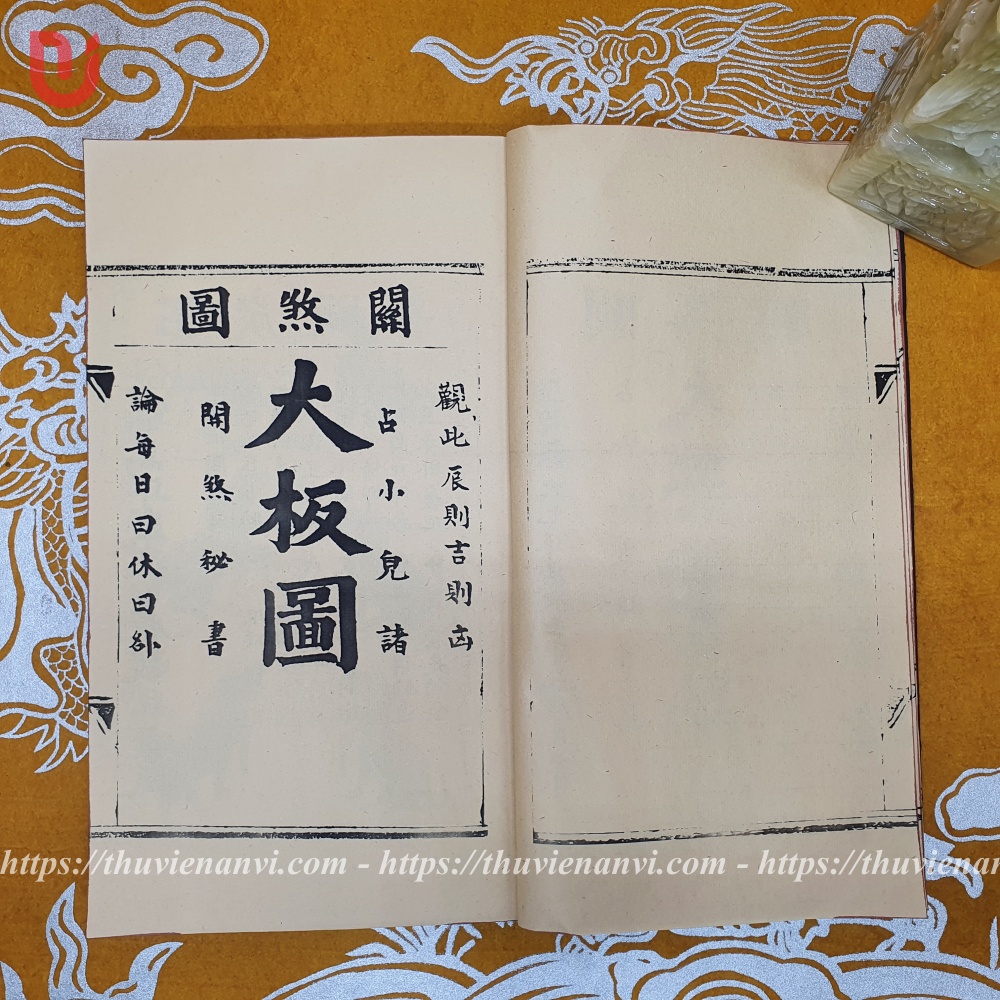 關煞圖
觀此辰則吉則凶
占小兒諸
大板圖
開煞秘書
論每日曰休曰
https://thuvienanvi.com - https://thuvienanvi.com - https://thuvienan